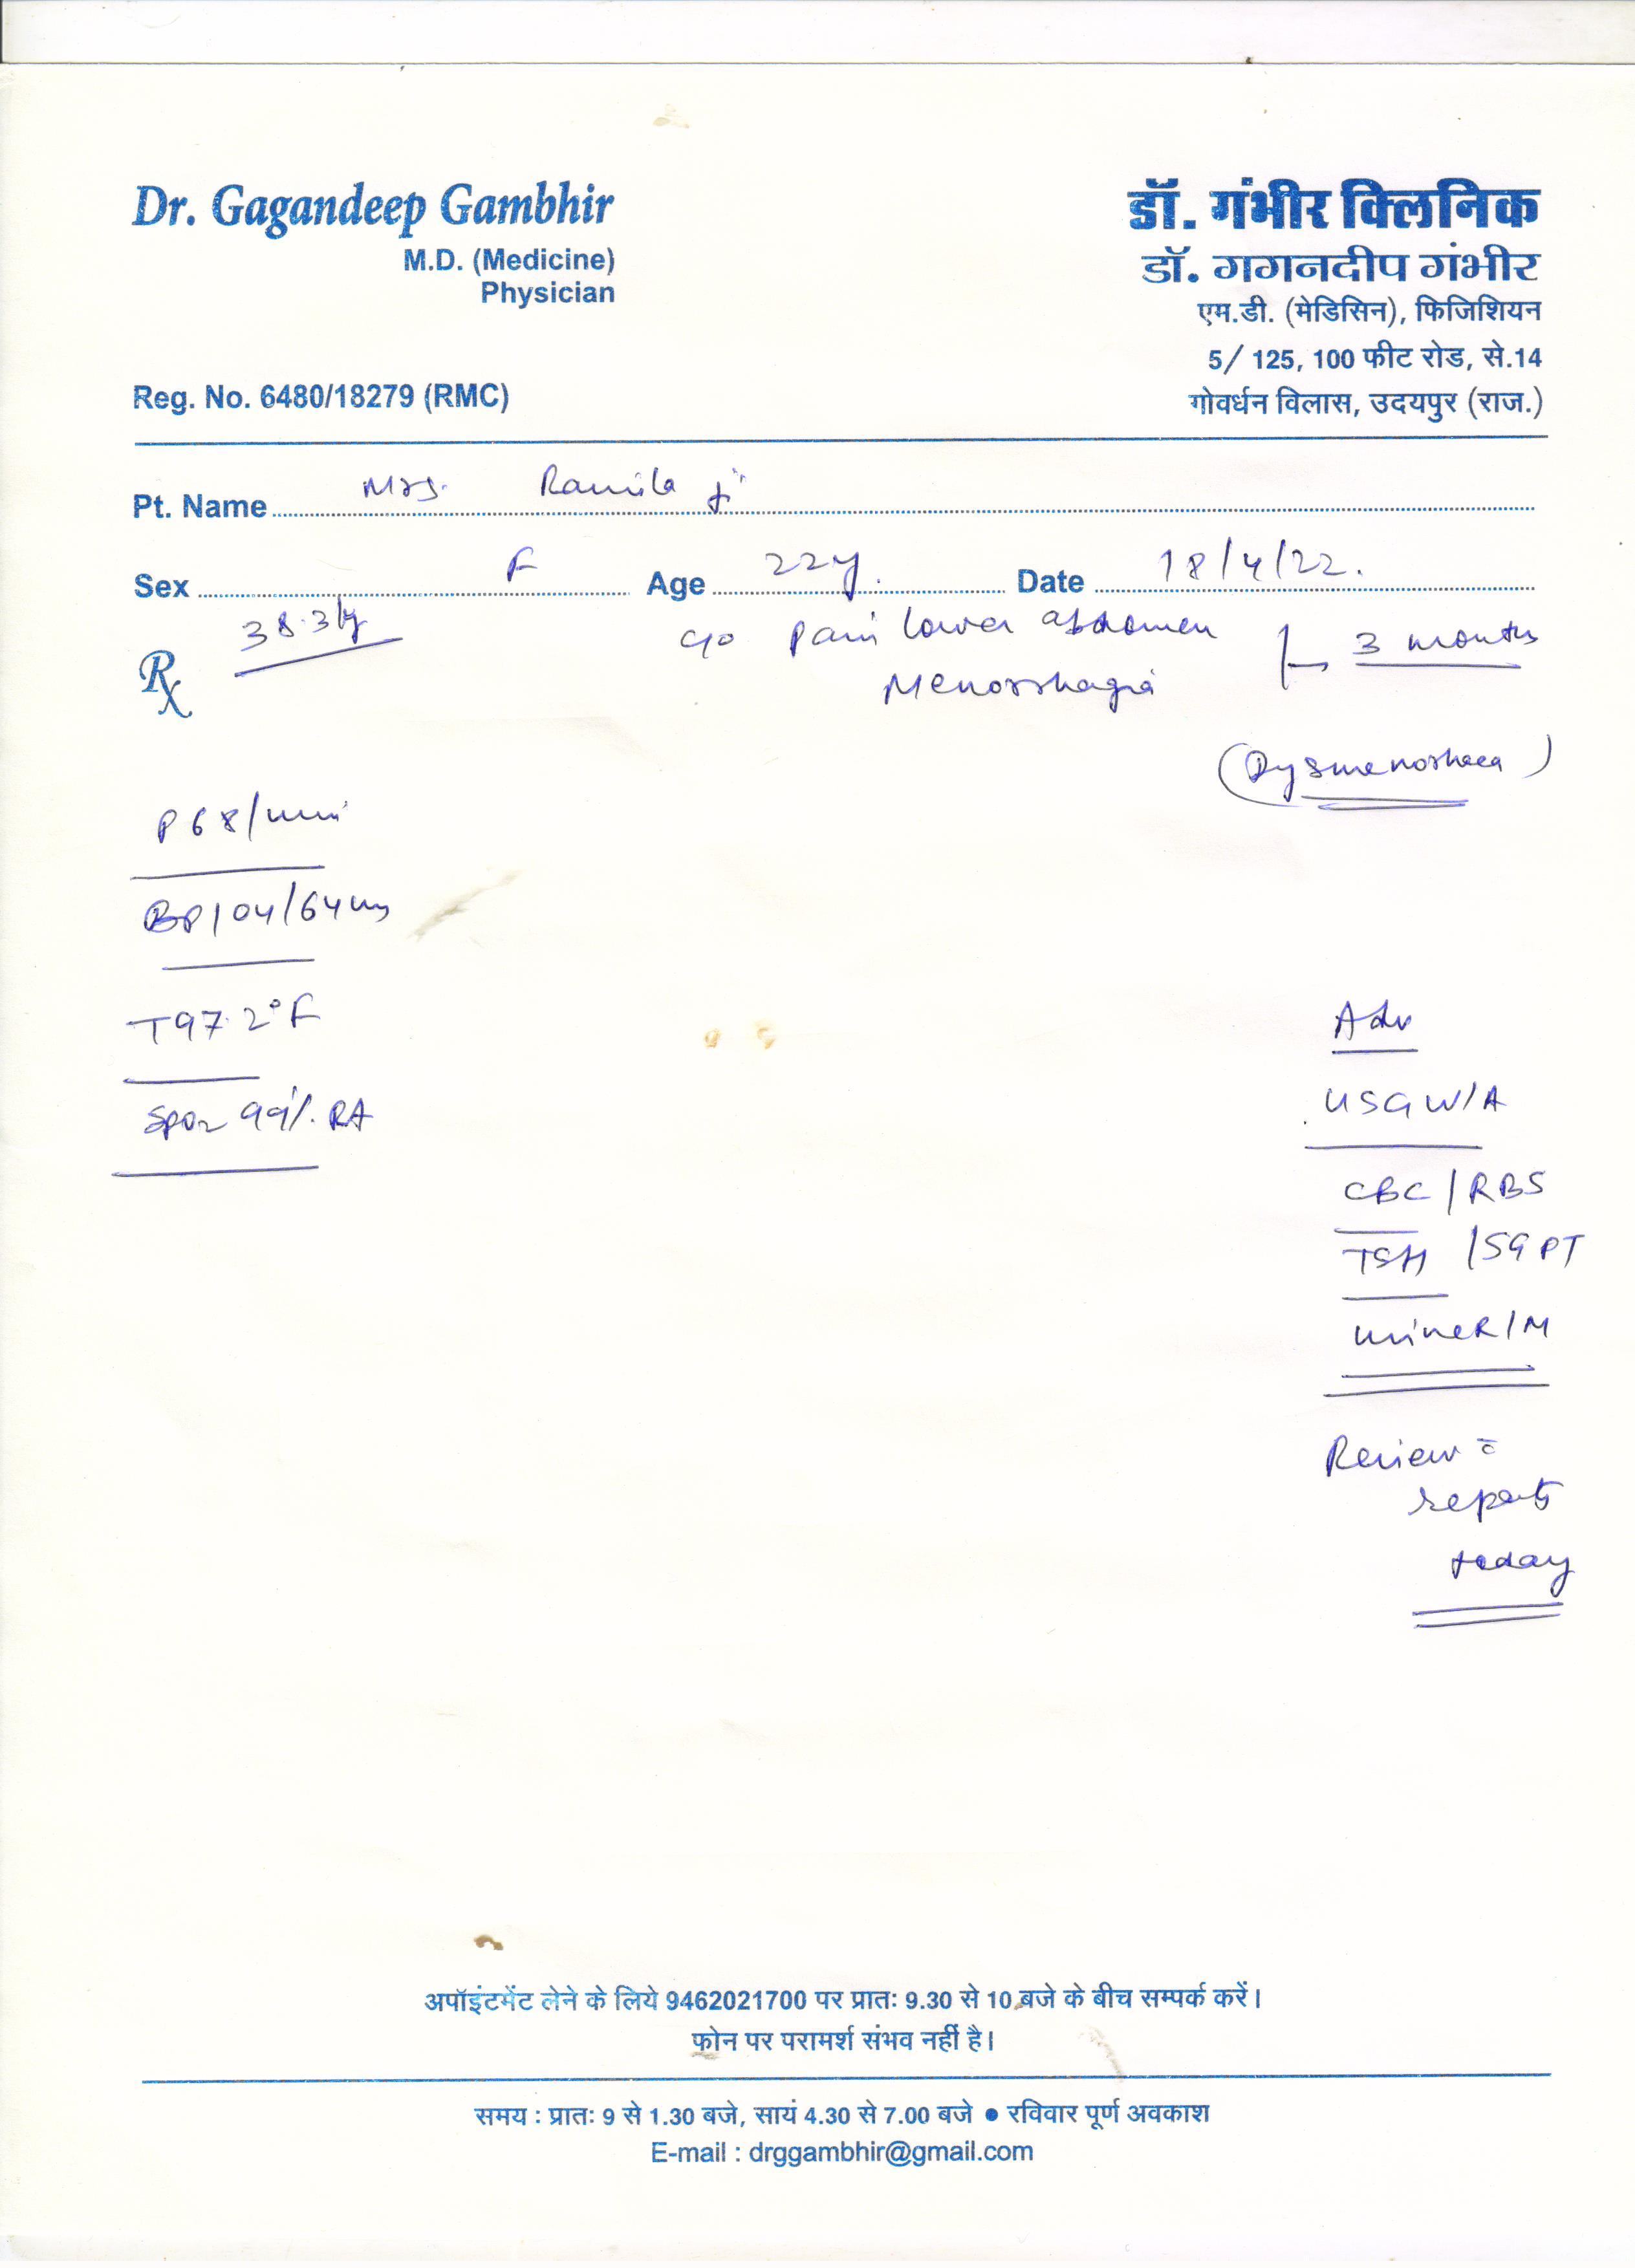 Dr. Gagandeep Gambhir
M.D. (Medicine)
Physician
Reg. No. 6480/18279 (RMC)
डॉ. गंभीर क्लिनिक
डॉ. गगनदीप गंभीर
एम.डी. (मेडिसिन), फिजिशियन
5/ 125, 100 फीट रोड, से.14
गोवर्धन विलास, उदयपुर (राज.)
Pt. Name Mrs. Ramila ji
Sex F Age 22y. Date 18/4/22.
Rx 38.3kg c/o Pain lower abdomen 3 months
Menorrhagia
(Dysmenorrhaea)
P 68/min
BP 104/64
T 97.2°F
SpO2 99%. RA
Adv
USG W/A
CBC / RBS
TSH / SGPT
Urine R/M
Review c̄
reports
today
अपॉइंटमेंट लेने के लिये 9462021700 पर प्रातः 9.30 से 10 बजे के बीच सम्पर्क करें।
फोन पर परामर्श संभव नहीं है।
समय : प्रातः 9 से 1.30 बजे, सायं 4.30 से 7.00 बजे ● रविवार पूर्ण अवकाश
E-mail : drggambhir@gmail.com